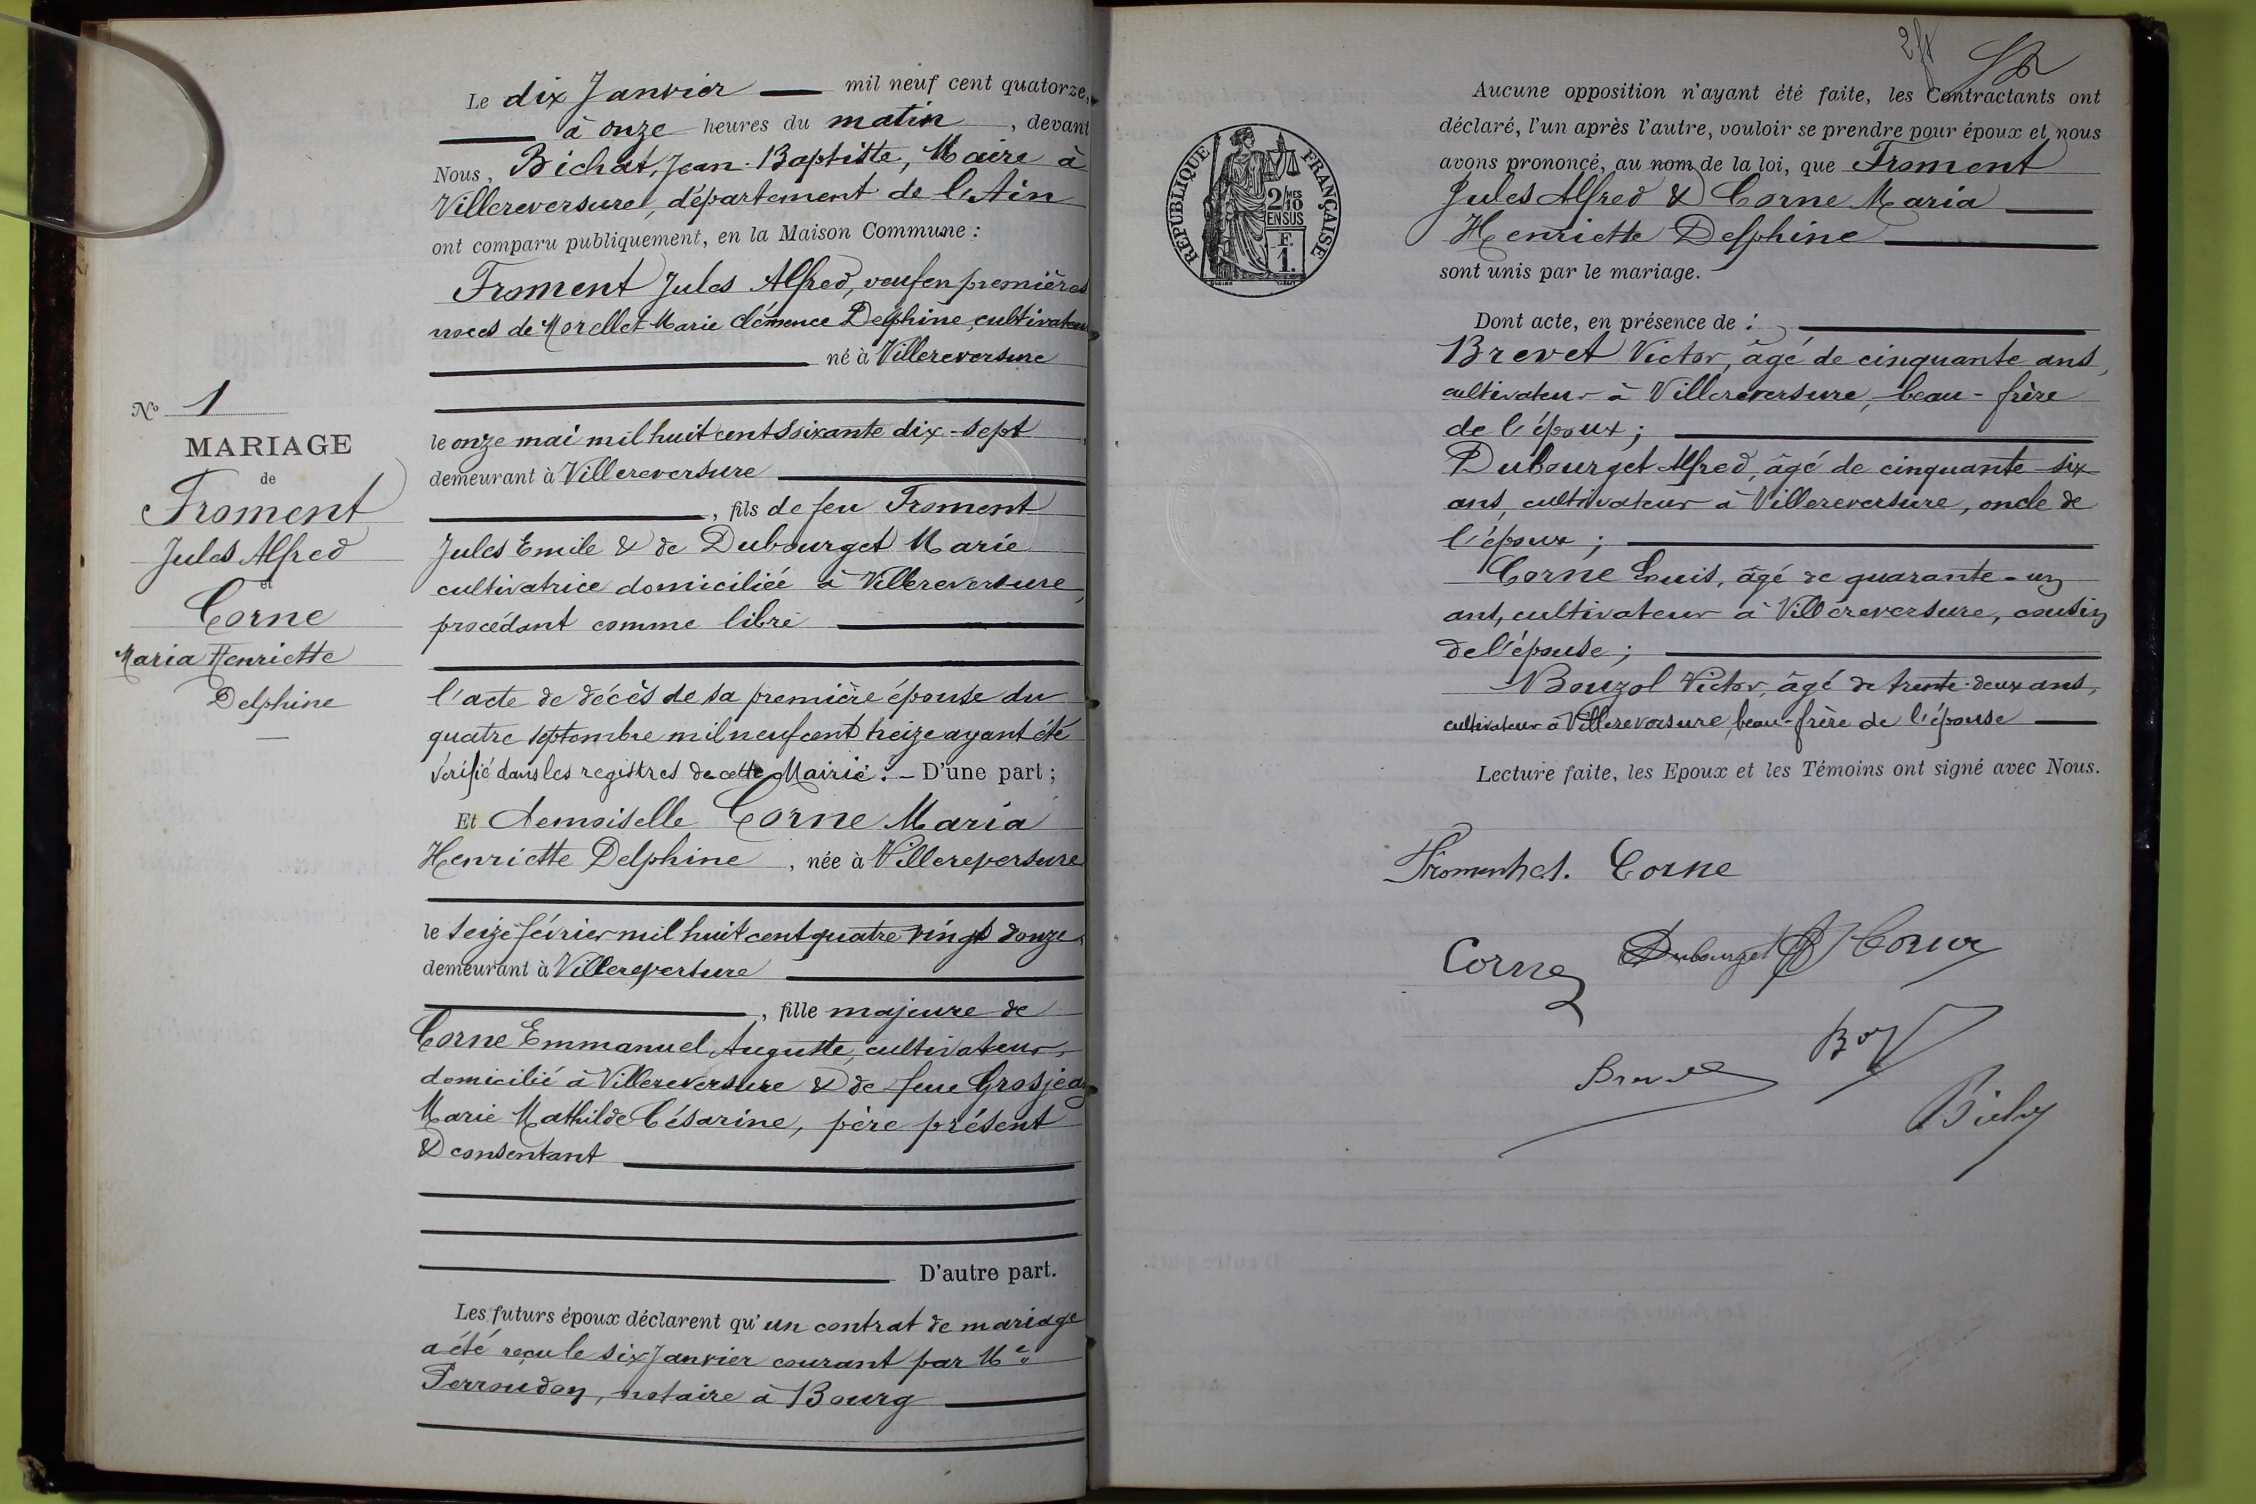 Le dix Janvier mil neuf cent quatorze,
à onze heures du matin, devant
Nous, Bichat, Jean-Baptiste, Maire à
Villereversure, département de l'Ain
ont comparu publiquement, en la Maison Commune :
Froment Jules Alfred, veuf en premières
noces de Morellet Marie Clémence Delphine, cultivateur
né à Villereversure
le onze mai mil huit cent soixante dix-sept
demeurant à Villereversure
, fils de feu Froment
Jules Emile & de Dubourget Marie
cultivatrice domiciliée à Villereversure,
procédant comme libre
l'acte de décès de sa première épouse du
quatre septembre mil neuf cent treize ayant été
vérifié dans les registres de cette Mairie. - D'une part ;
Et demoiselle Corne Maria
Henriette Delphine, née à Villereversure
le seize février mil huit cent quatre vingt douze
demeurant à Villereversure
, fille majeure de
Corne Emmanuel Auguste, cultivateur,
domicilié à Villereversure & de feue Grosjean
Marie Mathilde Césarine, père présent
& consentant
D'autre part.
Les futurs époux déclarent qu'un contrat de mariage
a été reçu le six Janvier courant par Me
Perroudon, notaire à Bourg
No 1
MARIAGE
de
Froment
Jules Alfred
et
Corne
Maria Henriette
Delphine
RÉPUBLIQUE FRANÇAISE
2/10 MES
EN SUS
F.
1.
Aucune opposition n'ayant été faite, les Contractants ont
déclaré, l'un après l'autre, vouloir se prendre pour époux et nous
avons prononcé, au nom de la loi, que Froment
Jules Alfred & Corne Maria
Henriette Delphine
sont unis par le mariage.
Dont acte, en présence de :
Brevet Victor, âgé de cinquante ans,
cultivateur à Villereversure, beau-frère
de l'époux ;
Dubourget Alfred, âgé de cinquante-six
ans, cultivateur à Villereversure, oncle de
l'époux ;
Corne Louis, âgé de quarante-un
ans, cultivateur à Villereversure, cousin
de l'épouse ;
Bouzol Victor, âgé de trente-deux ans,
cultivateur à Villereversure, beau-frère de l'épouse
Lecture faite, les Epoux et les Témoins ont signé avec Nous.
Corne
Corne Dubourget